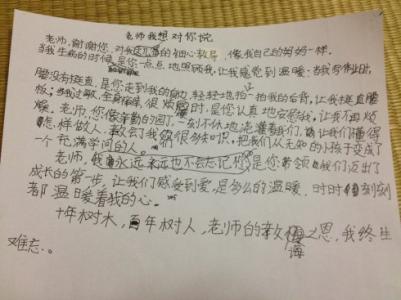 老师我想对你说
老师,谢谢您,对我这儿的细心教导,像我自己的妈妈一样。
当我生病的时候,是您一点点地照顾我,让我感觉到温暖。当我写作业时,
腰没有挺直,是您走到我的身边,轻轻地拍一拍我的后背,让我挺直腰
板;当我过敏,全身痒,很烦时,是您认真地安慰我,让我不再烦
燥。老师,您像辛勤的园丁,一刻不休地浇灌着我们,让我们懂得
怎样做人。教会了我们很多知识,把我们从无知的小孩子变成了
一个充满学问的人。
老师,我永远永远也不会忘记您,是您带领我们迈出了
成长的第一步,让我们感受到爱,是多么的温暖,时时刻刻
都温暖着我的心。
十年树木,百年树人,老师的教诲之恩,我终生
难忘。